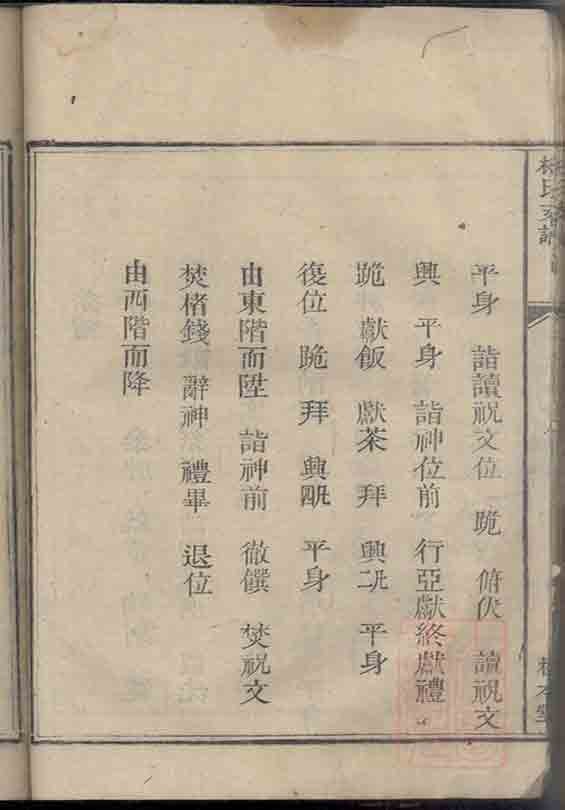 平身 詣讀祝文位 跪 俯伏 讀祝文
興 平身 詣神位前 行亞獻終獻禮
跪 獻飯 獻茶 拜 興二㧞 平身
復位 跪 拜 興四㧞 平身
由東階而陞 詣神前 徹饌 焚祝文
焚楮錢 辭神 禮畢 退位
由西階而降